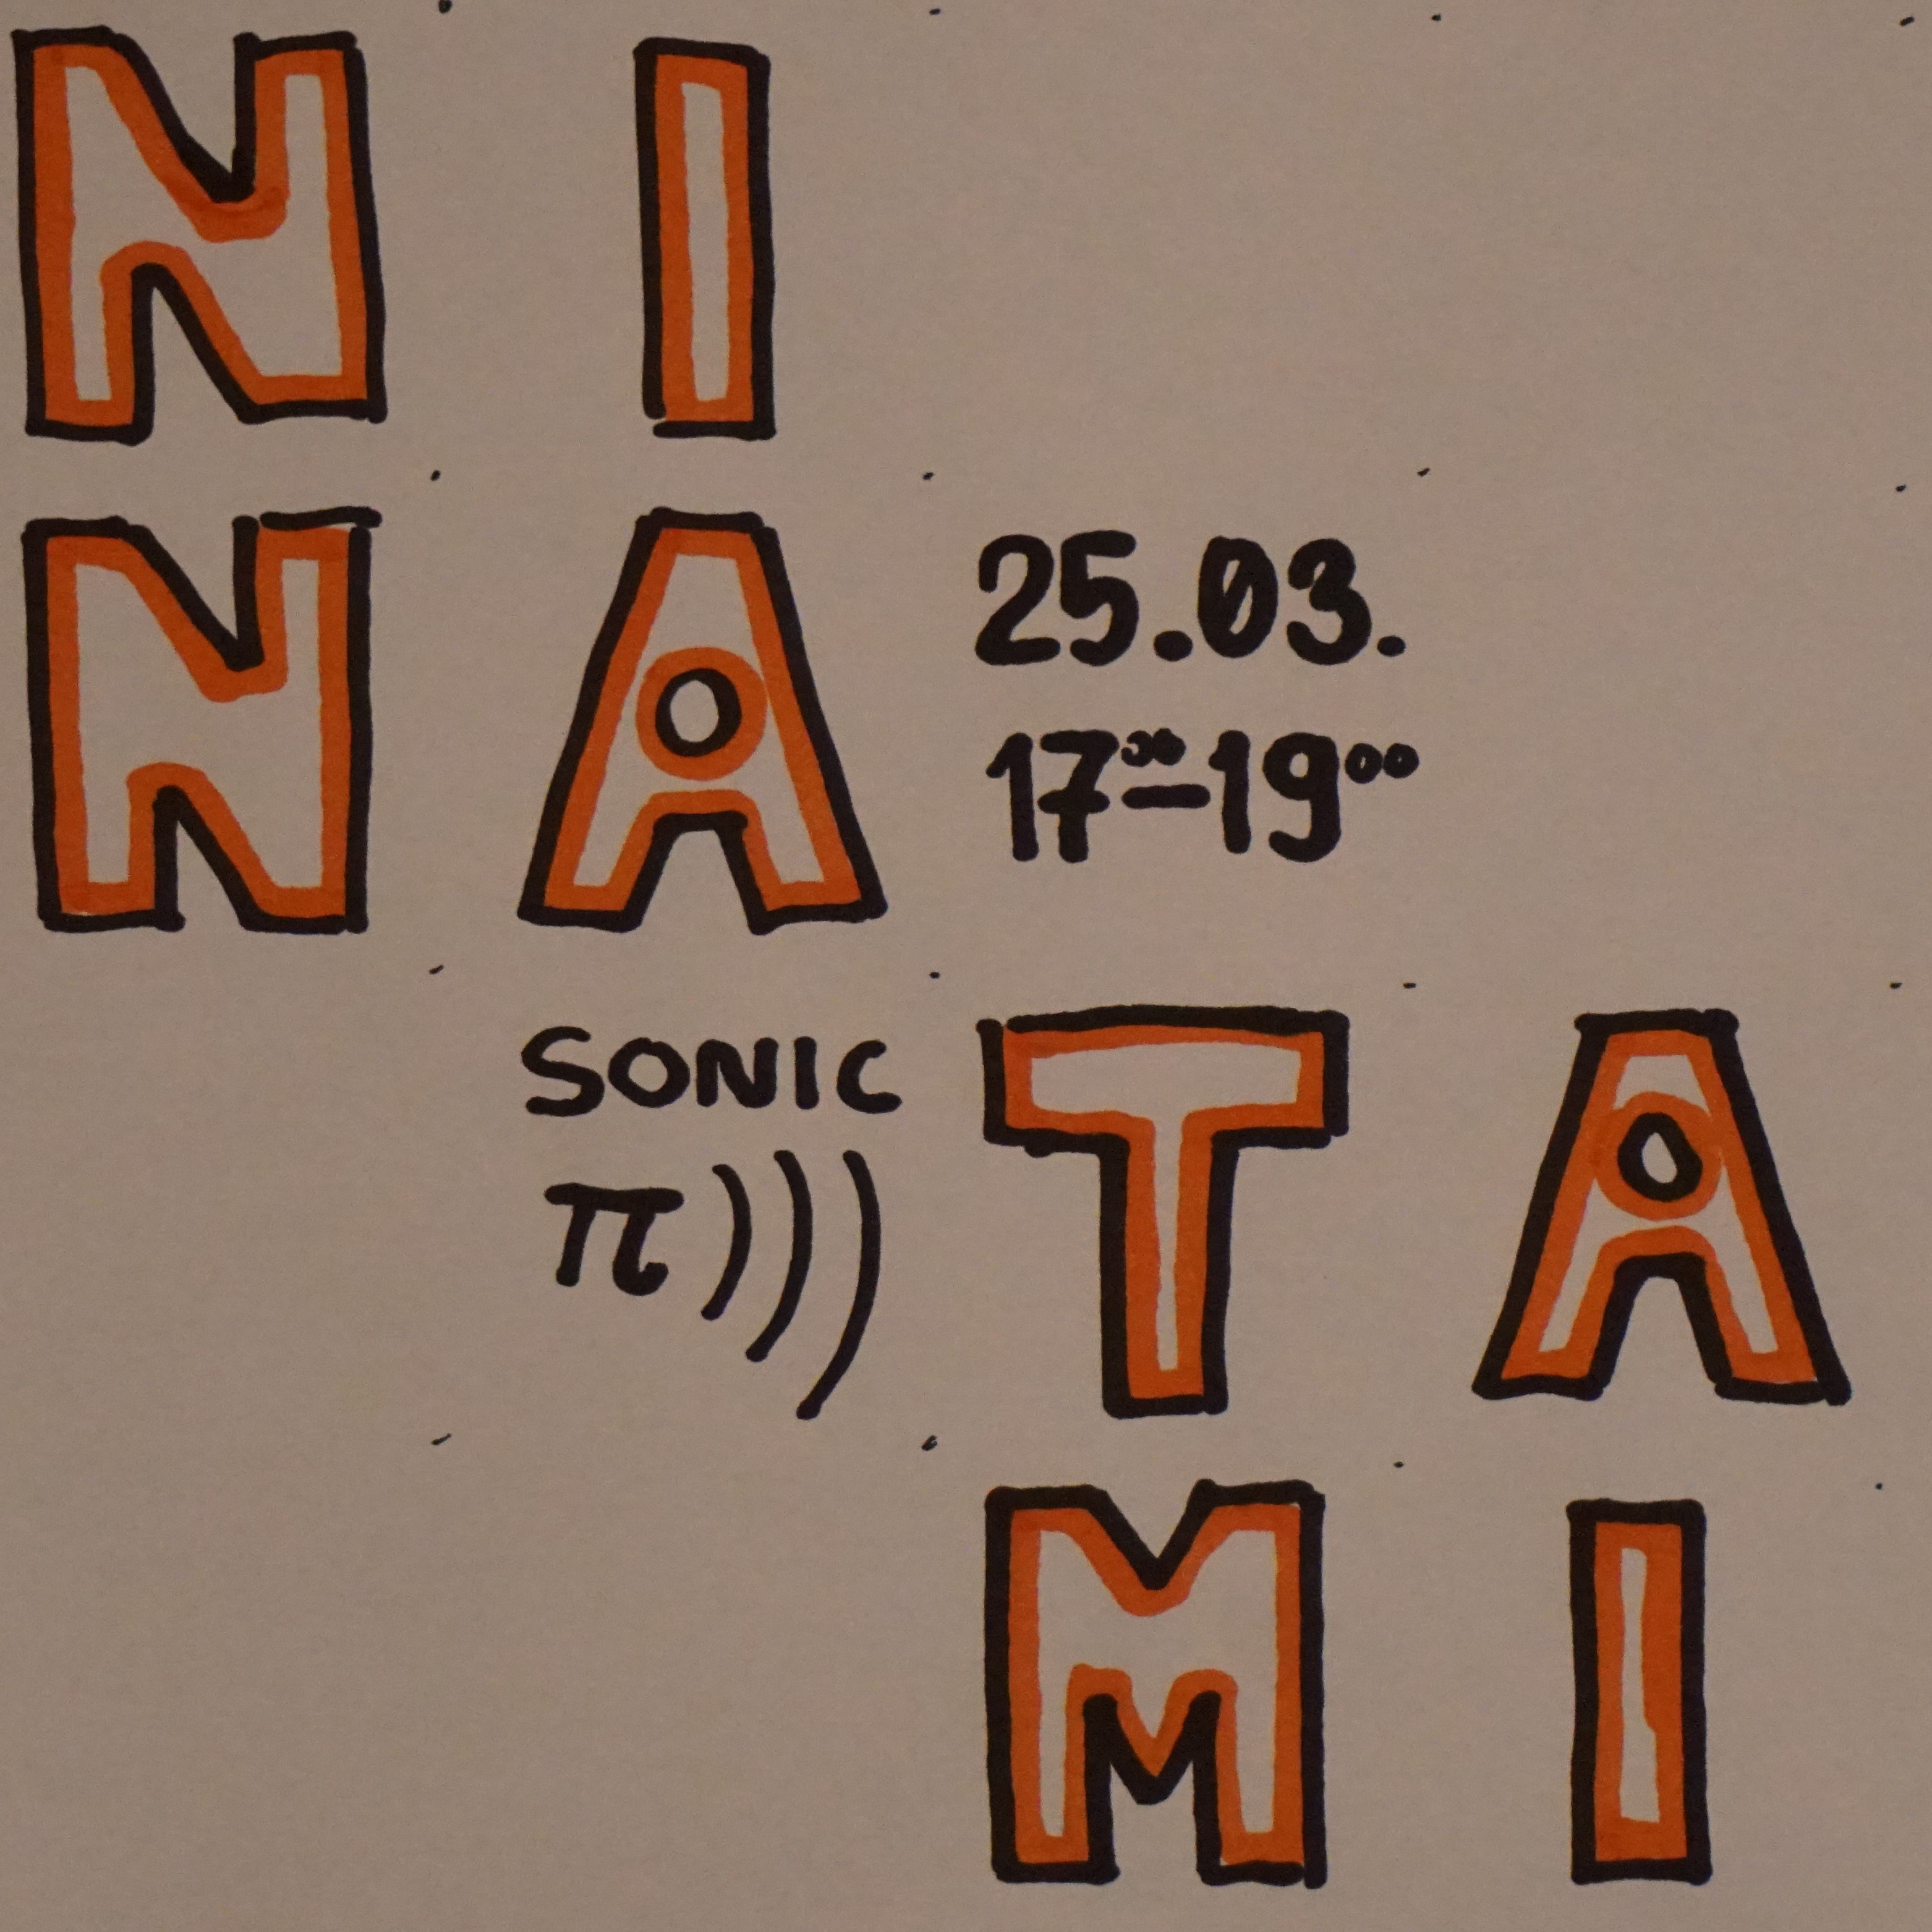 NI
NA
25.03.
17⁰⁰-19⁰⁰
SONIC
π)))
TA
MI